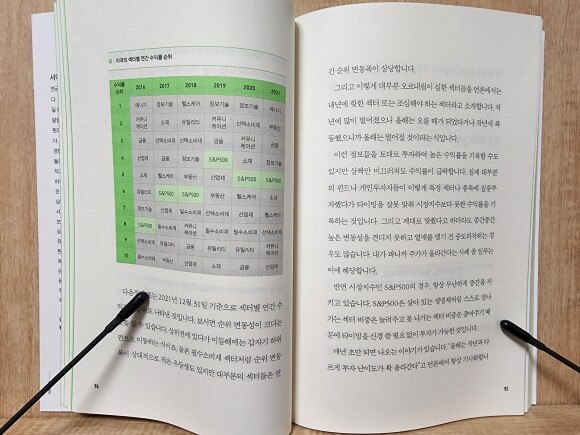 표 미국의 섹터별 연간 수익률 순위
수익률 순위 2016 2017 2018 2019 2020 2021
1 에너지 정보기술 헬스케어 정보기술 정보기술 에너지
2 커뮤니케이션 소재 유틸리티 커뮤니케이션 선택소비재 부동산
3 금융 선택소비재 선택소비재 금융 커뮤니케이션 금융
4 산업재 금융 정보기술 S&P500 소재 정보기술
5 소재 헬스케어 부동산 산업재 S&P500 S&P500
6 유틸리티 S&P500 S&P500 부동산 헬스케어 소재
7 정보기술 산업재 필수소비재 선택소비재 산업재 헬스케어
8 S&P500 필수소비재 커뮤니케이션 필수소비재 필수소비재 선택소비재
9 선택소비재 유틸리티 금융 유틸리티 유틸리티 커뮤니케이션
10 필수소비재 부동산 소재 금융
2021년 12월 31일 기준으로 섹터별 연간 수
로 나타낸 것입니다. 보시면 순위 변동성이 크다는
수 있습니다. 상위권에 있다가 이듬해에는 갑자기 하위
권으로 이동하는 식이죠. 물론 필수소비재 섹터처럼 순위 변동
폭이 상대적으로 적은 우등생도 있지만 대부분의 섹터들은 연
간 순위 변동폭이 상당합니다.
그리고 이렇게 대부분 오르내림이 심한 섹터들을 언론에서는
내년에 핫한 섹터 또는 조심해야 하는 섹터라고 소개합니다. 작
년에 많이 떨어졌으니 올해는 오를 때가 되었다거나 작년에 폭
등했으니까 올해는 떨어질 것이라는 식입니다.
이런 정보들을 토대로 투자하여 높은 수익률을 기록할 수도
있지만 삐끗만 미끄러져도 수익률이 급락합니다. 실제 대부분
의 펀드나 개인투자자들이 이렇게 특정 섹터나 종목에 집중투
자했다가 타이밍을 잘못 맞춰 시장지수보다 못한 수익률을 기
록하는 것입니다. 그리고 제대로 찾았다고 하더라도 중간중간
높은 변동성을 견디지 못하고 열매를 맺기 전 중도하차하는 경
우도 많습니다. 내가 파니까 주가가 올라간다는 사례 중 일부는
이에 해당합니다.
반면 시장지수인 S&P500의 경우, 항상 무난하게 중간을 지
키고 있습니다. S&P500은 살아 있는 생명체처럼 스스로 잘나
가는 섹터 비중은 늘려주고 못 나가는 섹터 비중은 줄여주기 때
문에 타이밍을 신경 쓸 필요 없이 투자가 가능한 것입니다.
매년 초만 되면 나오는 이야기가 있습니다. "올해는 작년과 다
르게 투자 난이도가 확 올라간다"고 언론에서 항상 기사화됩니
95